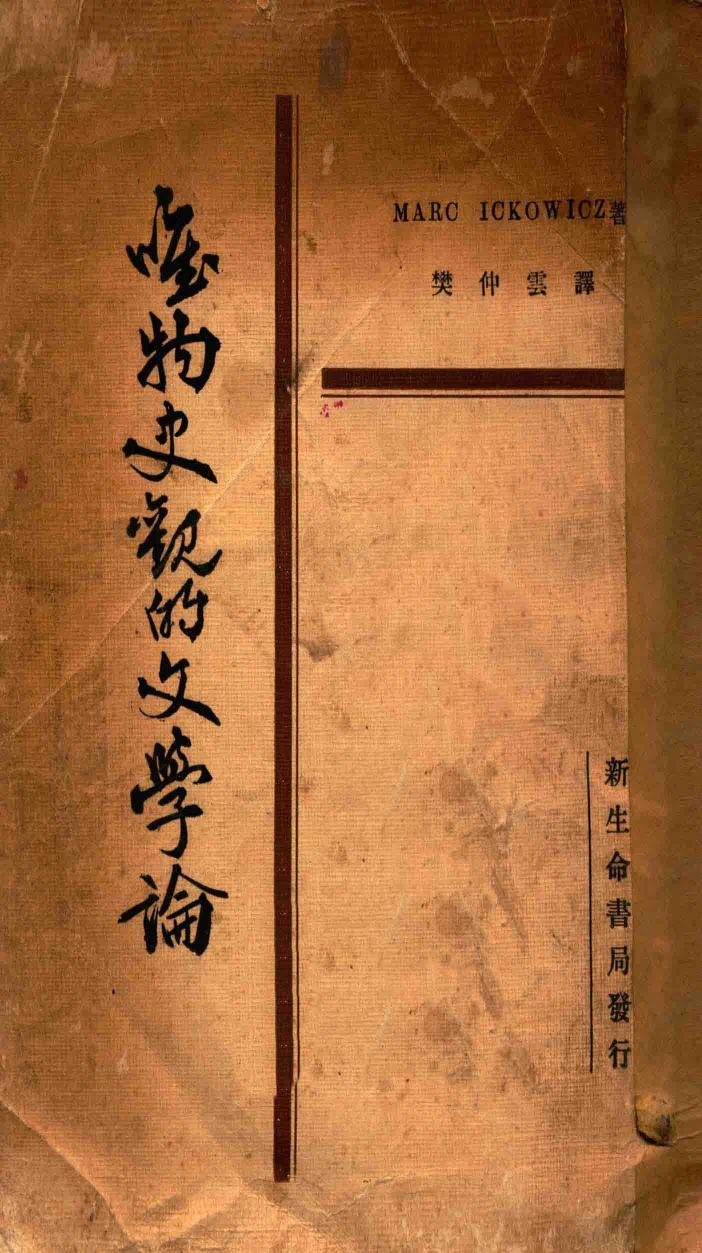 唯物史觀的文學論
MARC ICKOWICZ著
樊仲雲譯
新生命書局發行